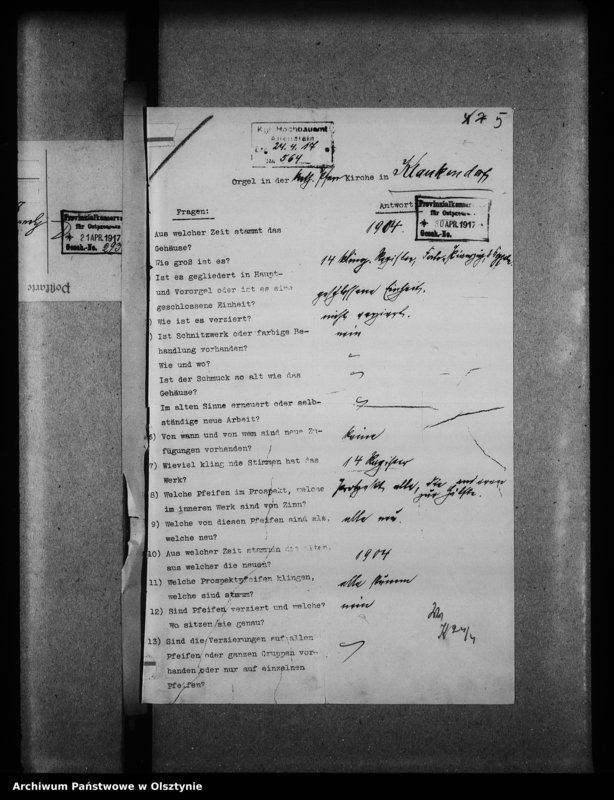 5
Kgl. Hochbauamt
Allenstein
24.4.17
564
Orgel in der kath. Pfarr Kirche in Klaukendorf
Fragen:
Antwort
Provinzialkonserv
für Ostpreussen
21 APR. 1917
Gesch.-No. 293
30 APR. 1917
Gesch.-No.
Postkarte
Aus welcher Zeit stammt das
Gehäuse?
1904.
Wie groß ist es?
14 kling. Register,
Ist es gegliedert in Haupt-
und Vororgel oder ist es eine
geschlossene Einheit?
geschlossene Einheit.
) Wie ist es verziert?
nicht verziert.
) Ist Schnitzwerk oder farbige Be-
handlung vorhanden?
nein
Wie und wo?
Ist der Schmuck so alt wie das
Gehäuse?
Im alten Sinne erneuert oder selb-
ständige neue Arbeit?
6) Von wann und von wem sind neue Zu-
fügungen vorhanden?
keine
7) Wieviel kling nde Stimmen hat das
Werk?
14 Register
8) Welche Pfeifen im Prospekt, welche
im inneren Werk sind von Zinn?
Prospekt alle, die anderen
zur Hälfte.
9) Welche von diesen Pfeifen sind alt,
welche neu?
alle neu.
10) Aus welcher Zeit stammen die alten,
aus welcher die neuen?
1904
11) Welche Prospektpfeifen klingen,
welche sind stumm?
alle stumm
12) Sind Pfeifen verziert und welche?
Wo sitzen sie genau?
nein
13) Sind die Verzierungen auf allen
Pfeifen oder ganzen Gruppen vor-
handen oder nur auf einzelnen
Pfeifen?
Archiwum Państwowe w Olsztynie